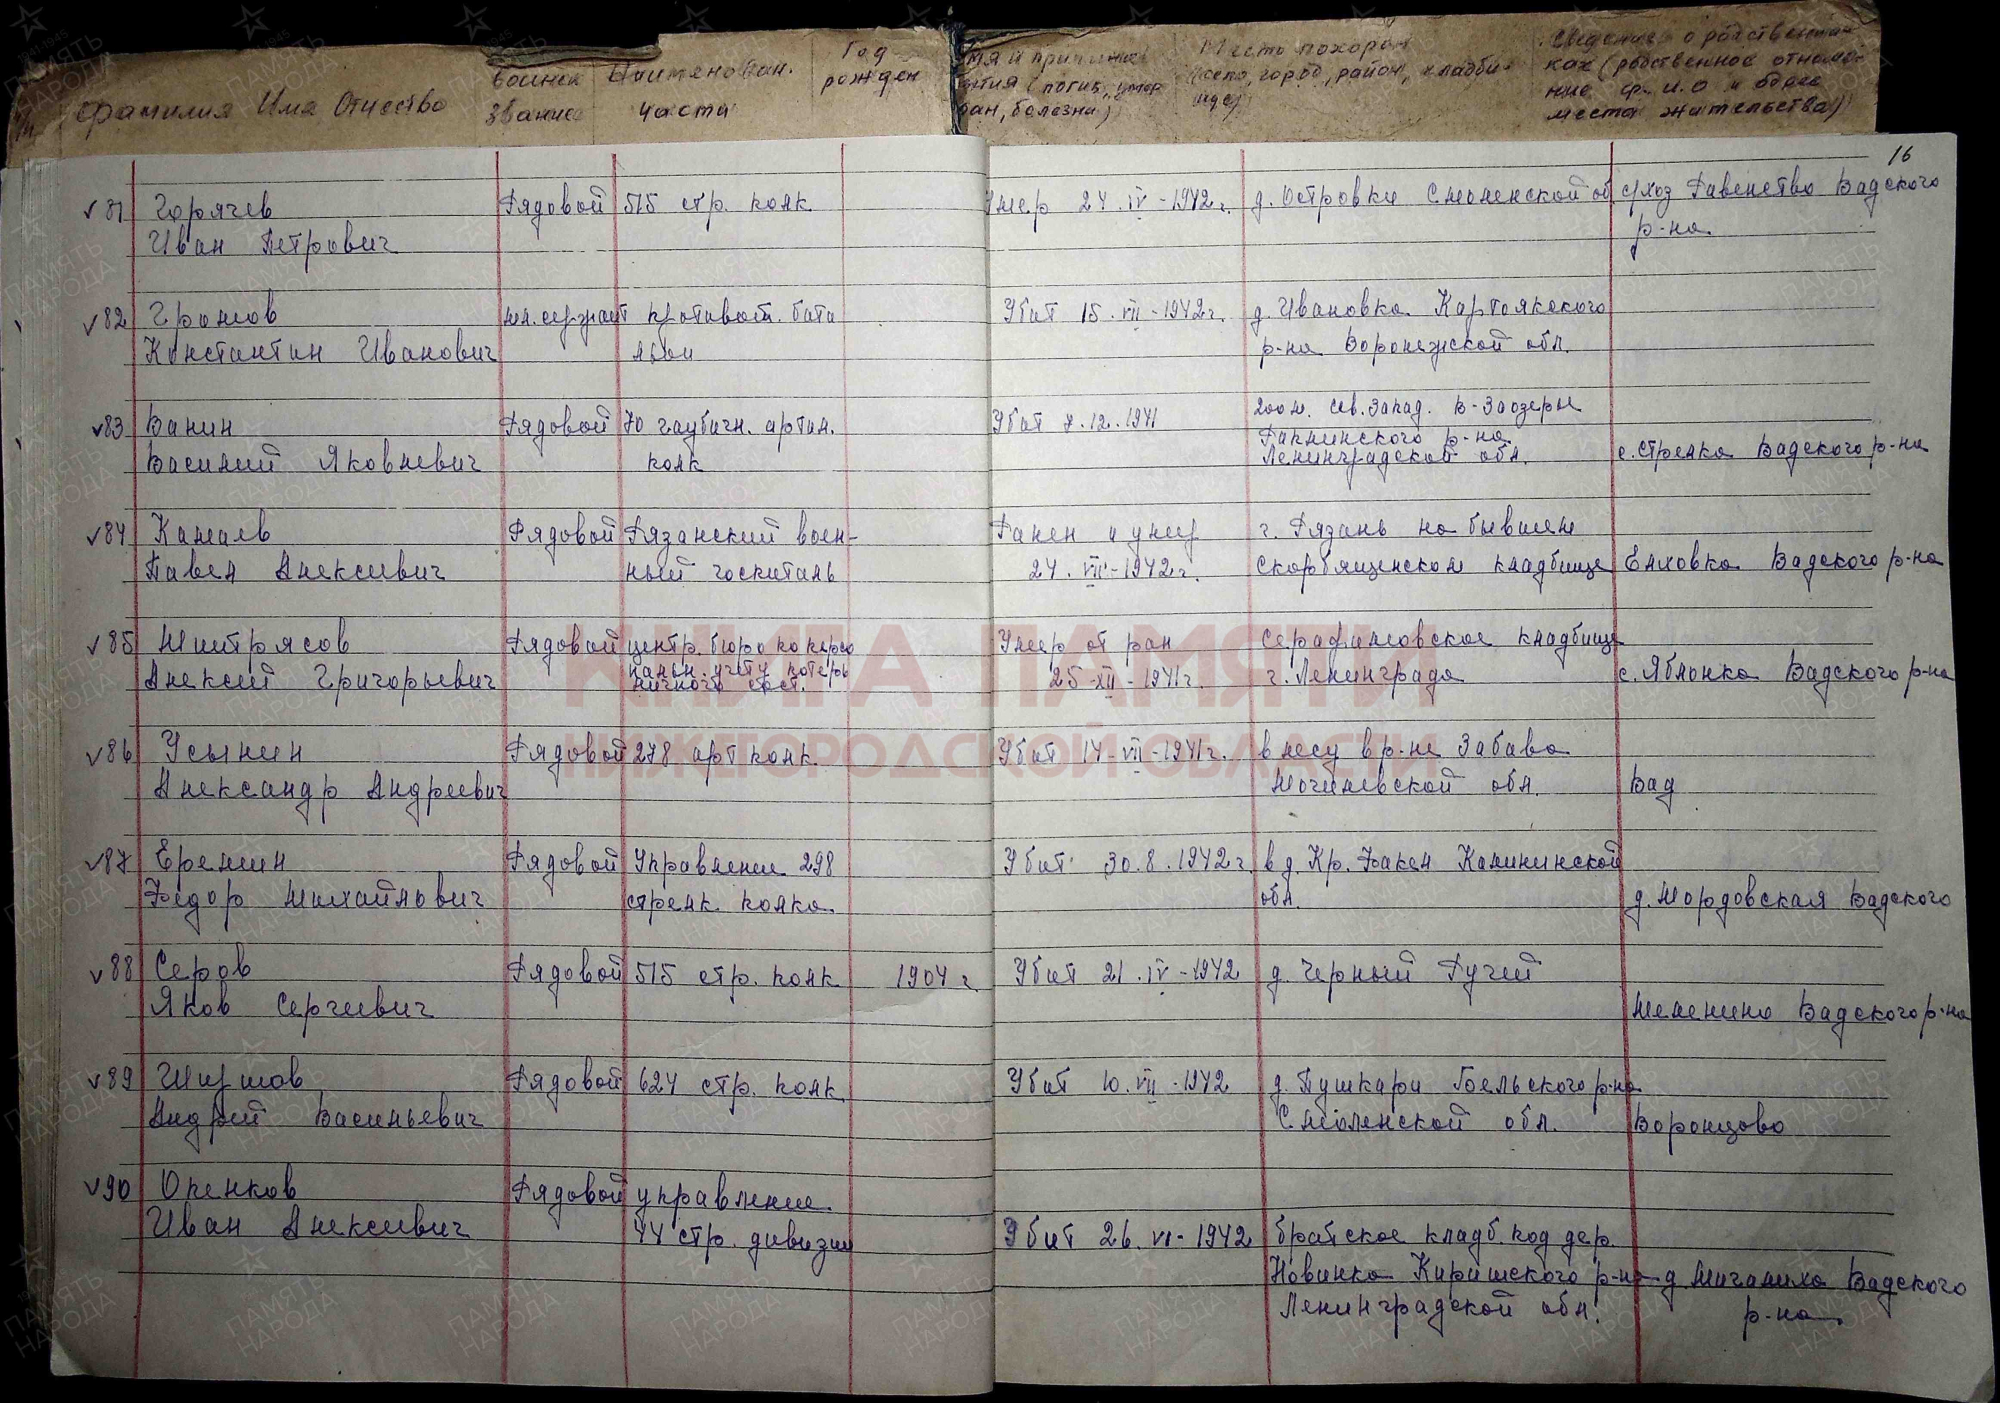 Фамилия Имя Отчество
воинск звание
Наименован. части
Год рожден
Место похорон
село, город, район, кладби-
ще)
Сведение о родственни-
ках (родственное отноше-
ние ф.и.о и более
места жительства)
16
81 Горячев Рядовой 515 стр. полк Умер 24.IV-1942г. д. Островки Смоленской об с/хоз Равенство Вадского
Иван Петрович р-на
82 Громов мл. сержант противот. бата Убит 15.VII-1942г. д. Ивановка Картоякского
Константин Иванович льон р-на Воронежской обл.
83 Ванин Рядовой 70 гаубичн. артил. Убит 7.12.1941 200м. сев. запад. В-Заозерье
Василий Яковлевич полк р-на Ленинградской обл. с. Стрелка Вадского р-на
84 Камаев Рядовой Рязанский воен- Ранен и умер г. Рязань на бывшем
Павел Алексеевич ный госпиталь 24.VII-1942г. Скорбященском кладбище Елховка Вадского р-на
85 Митрясов Рядовой центр. бюро по персо Умер от ран Серафимовское кладбище
нальн. учету потерь
Алексей Григорьевич личного сост. 25-XII-1941г. г. Ленинграда с. Яблонка Вадского р-на
86 Усынин Рядовой 278 арт полк. Убит 14-VII-1941г. в лесу в р-не Забава
Александр Андреевич Могилевской обл. Вад
87 Еремин Рядовой Управление 298 Убит 30.8.1942г. в д. Кр. Факел Калининской
Федор Михайлович стрелк. полка обл. д. Мордовская Вадского
88 Серов Рядовой 515 стр. полк 1904г. Убит 21.IV-1942 д. Черный Ручей
Яков Сергеевич Меленино Вадского р-на
89 Ширшов Рядовой 624 стр. полк Убит 10.VII-1942 д. Пушкари Бельского р-на
Андрей Васильевич Смоленской обл. Воронцово
90 Опенков Рядовой управление
Иван Алексеевич 44 стр. дивизии Убит 26.VI-1942 братское кладб. под дер.
Новинка Киришского р-на д. Мигалиха Вадского
Ленинградской обл. р-на
КНИГА ПАМЯТИ
НИЖЕГОРОДСКОЙ ОБЛАСТИ
ПАМЯТЬ
НАРОДА